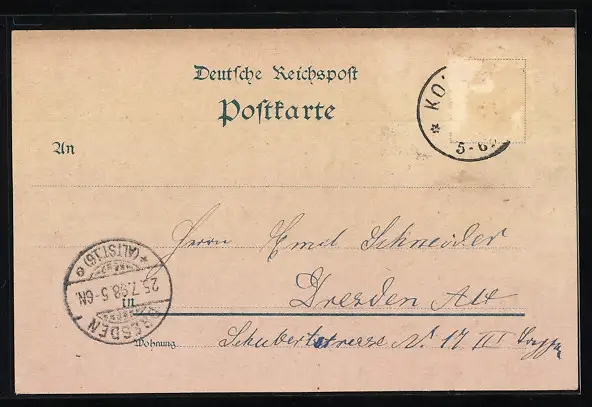 Deutsche Reichspost
Postkarte
KO
5-6
An
Herrn Emil Schneider
in Dresden Alt
Wohnung Schubertstrasse No 17 III Treppen
DRESDEN
(ALTST.16)
25.7.98.5-6N.